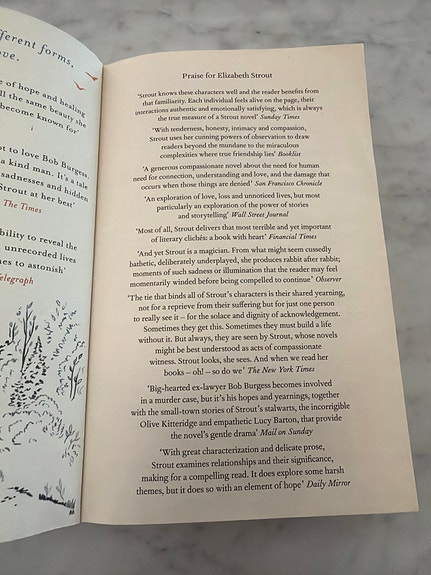 fferent forms,
ve.
e of hope and healing
ll the same beauty she
become known for'
t to love Bob Burgess.
a kind man. It's a tale
sadnesses and hidden
Strout at her best'
The Times
bility to reveal the
unrecorded lives
es to astonish'
elegraph
Praise for Elizabeth Strout
'Strout knows these characters well and the reader benefits from
that familiarity. Each individual feels alive on the page, their
interactions authentic and emotionally satisfying, which is always
the true measure of a Strout novel' Sunday Times
'With tenderness, honesty, intimacy and compassion,
Strout uses her cunning powers of observation to draw
readers beyond the mundane to the miraculous
complexities where true friendship lies' Booklist
'A generous compassionate novel about the need for human
need for connection, understanding and love, and the damage that
occurs when those things are denied' San Francisco Chronicle
'An exploration of love, loss and unnoticed lives, but most
particularly an exploration of the power of stories
and storytelling' Wall Street Journal
'Most of all, Strout delivers that most terrible and yet important
of literary clichés: a book with heart' Financial Times
'And yet Strout is a magician. From what might seem cussedly
bathetic, deliberately underplayed, she produces rabbit after rabbit;
moments of such sadness or illumination that the reader may feel
momentarily winded before being compelled to continue' Observer
'The tie that binds all of Strout's characters is their shared yearning,
not for a reprieve from their suffering but for just one person
to really see it – for the solace and dignity of acknowledgement.
Sometimes they get this. Sometimes they must build a life
without it. But always, they are seen by Strout, whose novels
might be best understood as acts of compassionate
witness. Strout looks, she sees. And when we read her
books – oh! – so do we' The New York Times
'Big-hearted ex-lawyer Bob Burgess becomes involved
in a murder case, but it's his hopes and yearnings, together
with the small-town stories of Strout's stalwarts, the incorrigible
Olive Kitteridge and empathetic Lucy Barton, that provide
the novel's gentle drama' Mail on Sunday
'With great characterization and delicate prose,
Strout examines relationships and their significance,
making for a compelling read. It does explore some harsh
themes, but it does so with an element of hope' Daily Mirror